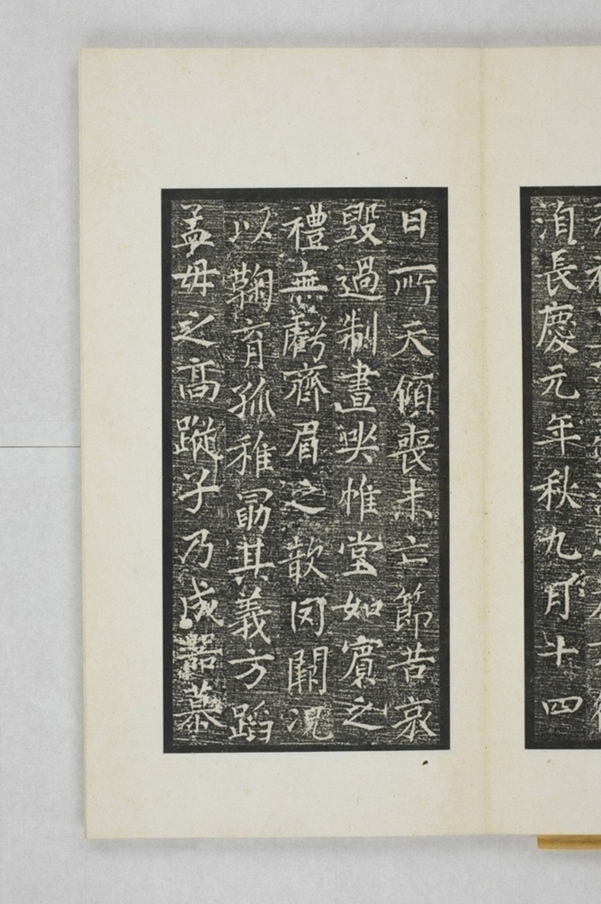 洎長慶元年秋九月十四
日所天傾喪未亡節苦哀
毀過制晝哭惟堂如賓之
禮無虧齊眉之歡罔闕況
以鞠育孤稚勗其義方蹈
孟母之高蹤子乃成器慕